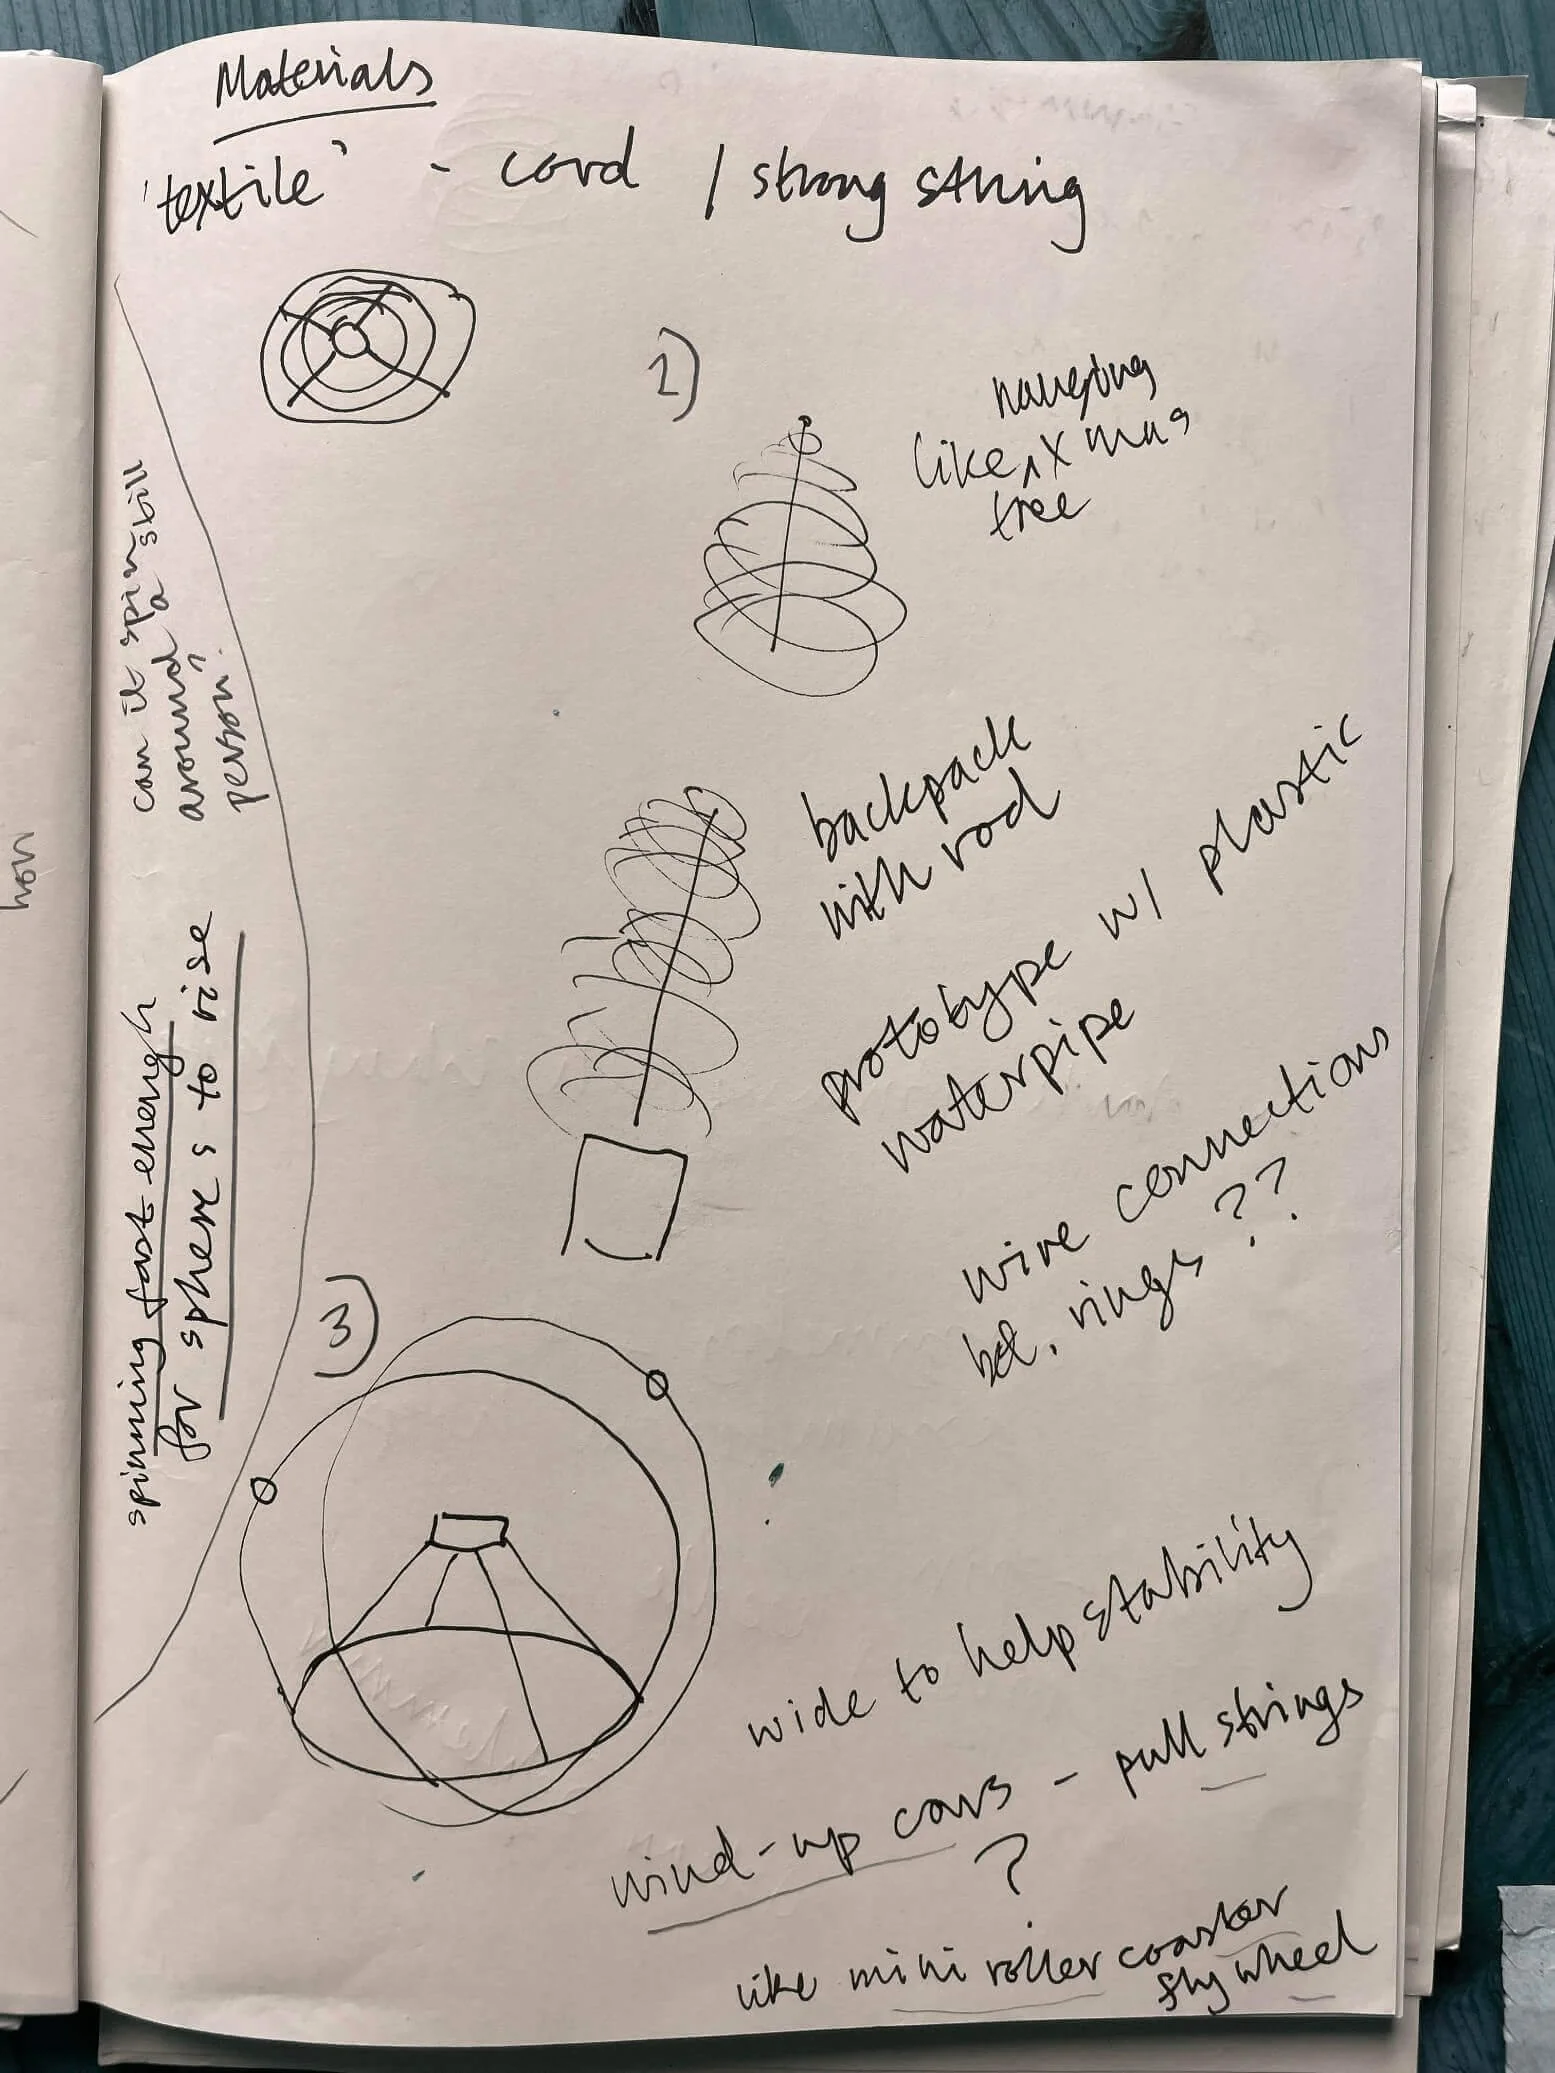 Materials
'textile' - cord / strong string
2)
hanging
like ^ xmas
tree
can it spin
around ^ a still
person.
backpack
with rod
prototype w/ plastic
waterpipe
wire connections
bet. rings ??
spinning fast enough
for spheres to rise
3)
wide to help stability
wind-up cars - pull strings
?
like mini roller coaster
fly wheel
how